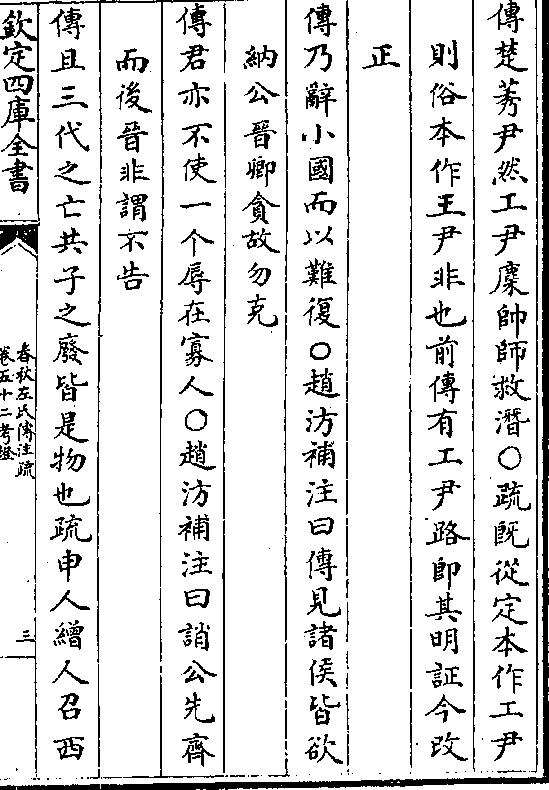 傳楚莠尹然工尹麇帥師救潛○疏既從定本作工尹
則俗本作王尹非也前傳有工尹路即其明証今改
正
傳乃辭小國而以難復○趙汸補注曰傳見諸侯皆欲
納公晉卿貪故勿克
傳君亦不使一个辱在寡人○趙汸補注曰誚公先齊
而後晉非謂不告
傳且三代之亡共子之廢皆是物也疏申人繒人召西
欽定四庫全書
春秋左氏傳注疏
卷五十二考證
三